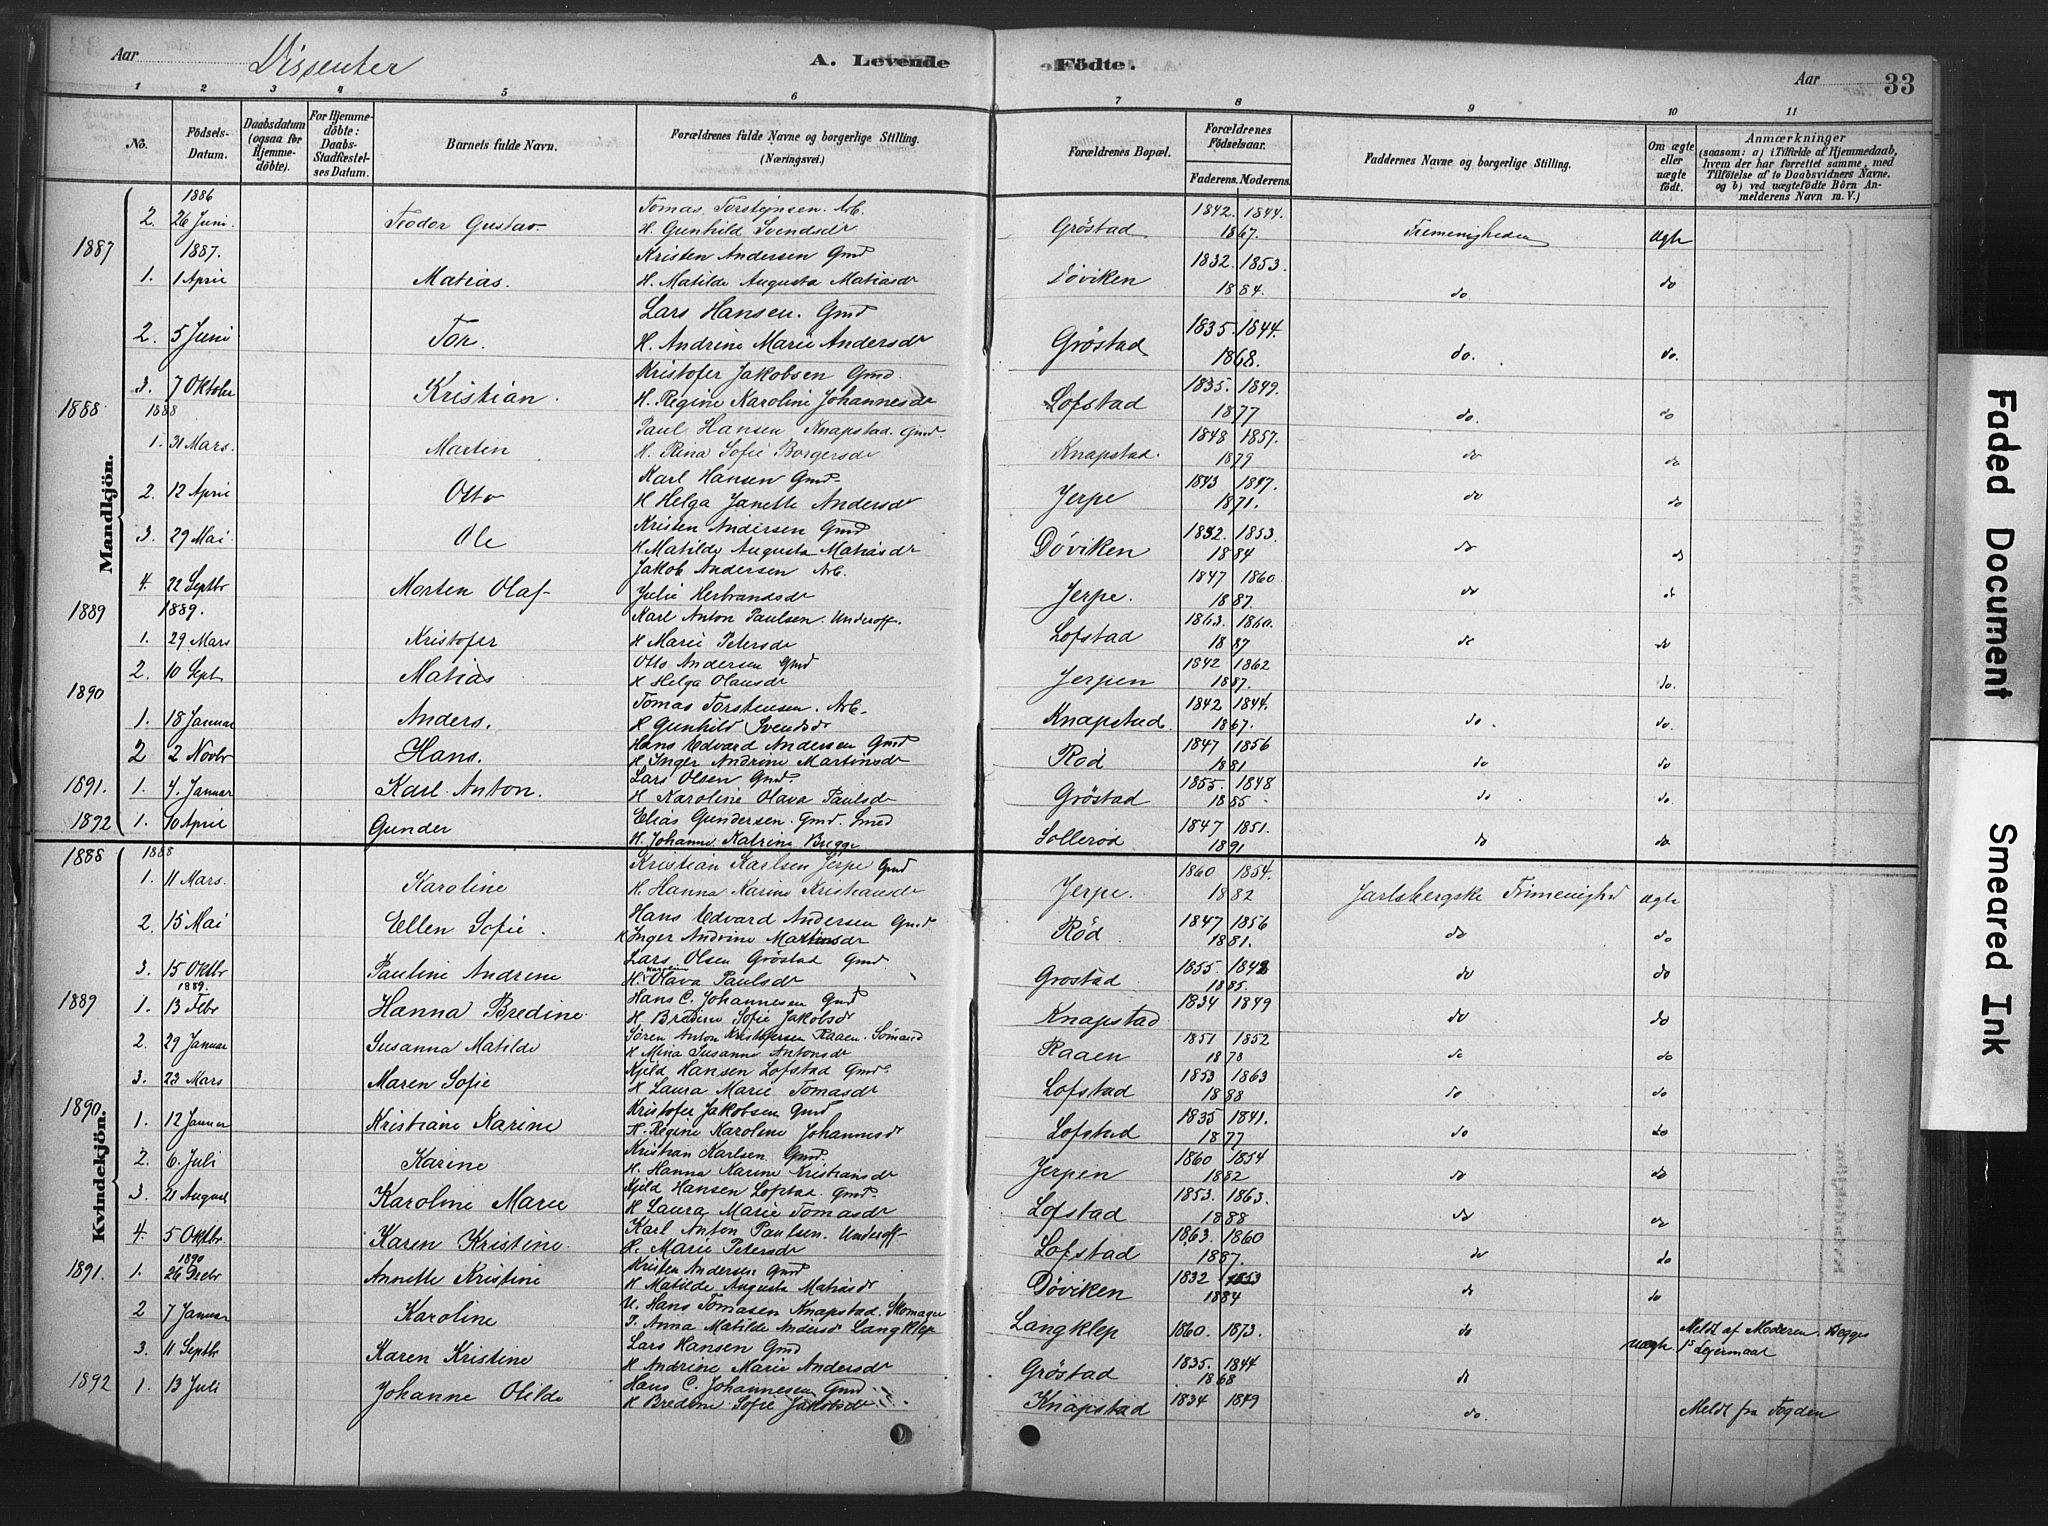 Aar Dissenter A. Levende Födte. Aar 33
1 2 3 4 5 6 7 8 9 10 11
No. Födsels-Datum. Daabsdatum (ogsaa for Hjemmedöbte). For Hjemmedöbte: Daabs-Stadfestelses Datum. Barnets fulde Navn. Forældrenes fulde Navne og borgerlige Stilling. (Næringsvei.) Forældrenes Bopæl. Forældrenes Födselsaar. Faderens. Moderens. Faddernes Navne og borgerlige Stilling. Om ægte eller uægte födt. Anmærkninger (saasom: a) i Tilfælde af Hjemmedaab, hvem der har forrettet samme, med Tilföielse af to Daabsvidners Navne. og b) ved uægtefödte Börn Anmelderens Navn m. V.)
Mandkjön.
1886
2. 26 Juni. Teodor Gustav Tomas Torstejnsen. Arb. Gröstad 1842. 1844.
H. Gunhild Svendsdr 1867. Frimenigheden ægte
1887 1887. Kristen Andersen Gmd
1. 1 April Matias. H. Matilde Augusta Matiasdr Döviken 1832. 1853. 1884. do. do
Lars Hansen. Gmd
2. 5 Juni Tor. H. Andrine Marie Andersdr Gröstad 1835. 1844. 1868. do. do.
Kristofer Jakobsen Gmd.
3. 7 Oktober Kristian. H. Regine Karoline Johannesdr Lofstad 1835. 1849. 1877 do. do
1888 1888 Paul Hansen Knapstad. Gmd.
1. 31 Mars. Martin H. Rina Sofie Borgersdr Knapstad. 1848 1857. 1879 do do
Karl Hansen Gmd.
2. 12 April Otto H Helga Janette Andersdr Jerpe 1843 1847. 1871. do do
Kristen Andersen Gmd
3. 29 Mai. Ole H. Matilde Augusta Matiasdr Döviken 1832. 1853. 1884 do do
Jakob Andersen Arb.
4. 22 Septbr Morten Olaf Julie Herbrandsdr Jerpe. 1847 1860. 1887. do do
1889 1889. Karl Anton Paulsen. Underoff.
1. 29 Mars Kristofer H Marie Petersdr Lofstad 1863. 1860. 1887 do do
Otto Andersen Gmd
2. 10 Sept. Matias H Helga Olausdr Jerpen 1842 1862 1887. do.
1890 Tomas Torstensen. Arb.
1. 18 Januar Anders. H Gunhild Svendsdr Knapstad 1842 1844. 1867. do. do.
Hans Edvard Andersen Gmd
2 2 Novbr Hans. H Inger Andrine Martinsdr Röd 1847 1856 1881 do do
Lars Olsen Gmd.
1891. 1. 4. Januar Karl Anton. H Karoline Olava Paulsdr Gröstad 1855. 1848 1885. do do
Elias Gundersen. Gmd. Smed
1892 1. 10 April Gunder H. Johanne Katrine Bugge Sollerød 1847 1851. 1891 do do
Kvindekjön.
1888 1888 Kristian Karlsen Jerpe Gmd
1. 11 Mars. Karoline H. Hanna Karine Kristiansdr Jerpe. 1860 1854. 1882 Jarlsbergske Frimenighed ægte
Hans Edvard Andersen Gmd
2. 15 Mai Ellen Sofie. H Inger Andrine Martinsdr Röd 1847 1856 1881. do do
Lars Olsen Gröstad Gmd.
3. 15 Oktbr Pauline Andrine H. Karoline Olava Paulsdr Grostad 1855 1848 1885. do do
1889 1889. Hans C. Johannesen Gmd
1. 13 Febr Hanna Bredine. H. Bredine Sofie Jakobsdr Knapstad 1834 1849 do do
Sören Anton Kristofersen Raaen. Sömand
2. 29 Januar Susanna Matilde H Mina Susanne Antonsdr Raaen 1851 1852 1878 do do
Kjeld Hansen Lofstad Gmd.
3. 23 Mars Maren Sofie H Laura Marie Tomasdr Lofstad 1853 1863 1888 do do
1890. Kristofer Jakobsen Gmd
1. 12 Januar Kristiane Karine H. Regine Karoline Johannesdr Lofstad 1835 1841. 1877 do do
Kristian Karlsen. Gmd.
2. 6. Juli Karine H. Hanna Karine Kristiansdr Jerpen 1860 1854 1882 do do
Kjeld Hansen Lofstad. Gmd.
3. 21 August Karoline Marie H Laura Marie Tomasdr Lofstad 1853. 1863. 1888 do do
Karl Anton Paulsen. Underoff
4. 5 Oktbr. Karen Kristine. H. Marie Petersdr Lofstad 1863. 1860 1887. do do
1890 Kristen Andersen Gmd
1891. 1. 26 Decbr Annette Kristine H Matilde Augusta Matiasdr Döviken 1832 1853 1884 do do
U. Hans Tomasen Knapstad. Skomager
2 7 Januar Karoline P. Anna Matilde Andersdr Langklep Langklep 1860. 1873. do uægte. Meldt af Moderen. Begges 1ste Lejermaal
Lars Hansen Gmd
3. 11 Septbr Karen Kristine H Andrine Marie Andersdr Gröstad 1835. 1844 1868 do
Hans C. Johannesen Gmd.
1892 1. 13 Juli Johanne Otilde H Bredine Sofie Jakobsdr Knapstad 1834 1849 do. Meldt fra Fogden
Faded Document
Smeared Ink